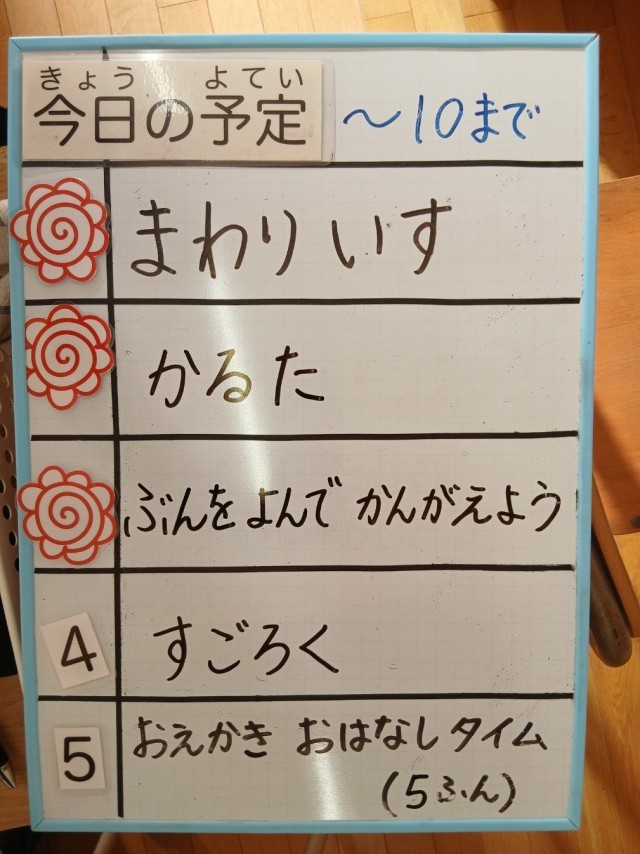 きょう よてい
今日の予定
～10まで
まわりいす
かるた
ぶんをよんで かんがえよう
4
すごろく
5
おえかき おはなしタイム
(5ふん)